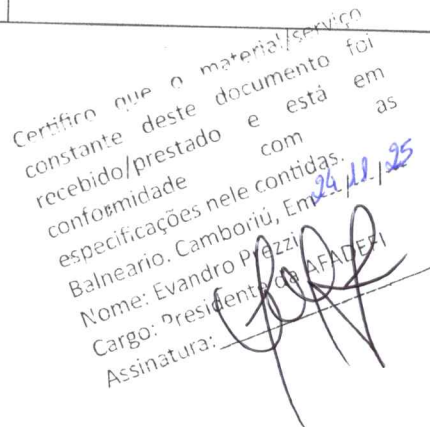 Certifico que o material/serviço
constante deste documento foi
recebido/prestado e está em
conformidade com as
especificações nele contidas.
Balneario. Camboriú, Em 24/11/25
Nome: Evandro Prezzi
Cargo: Presidente da AFADEFI
Assinatura: